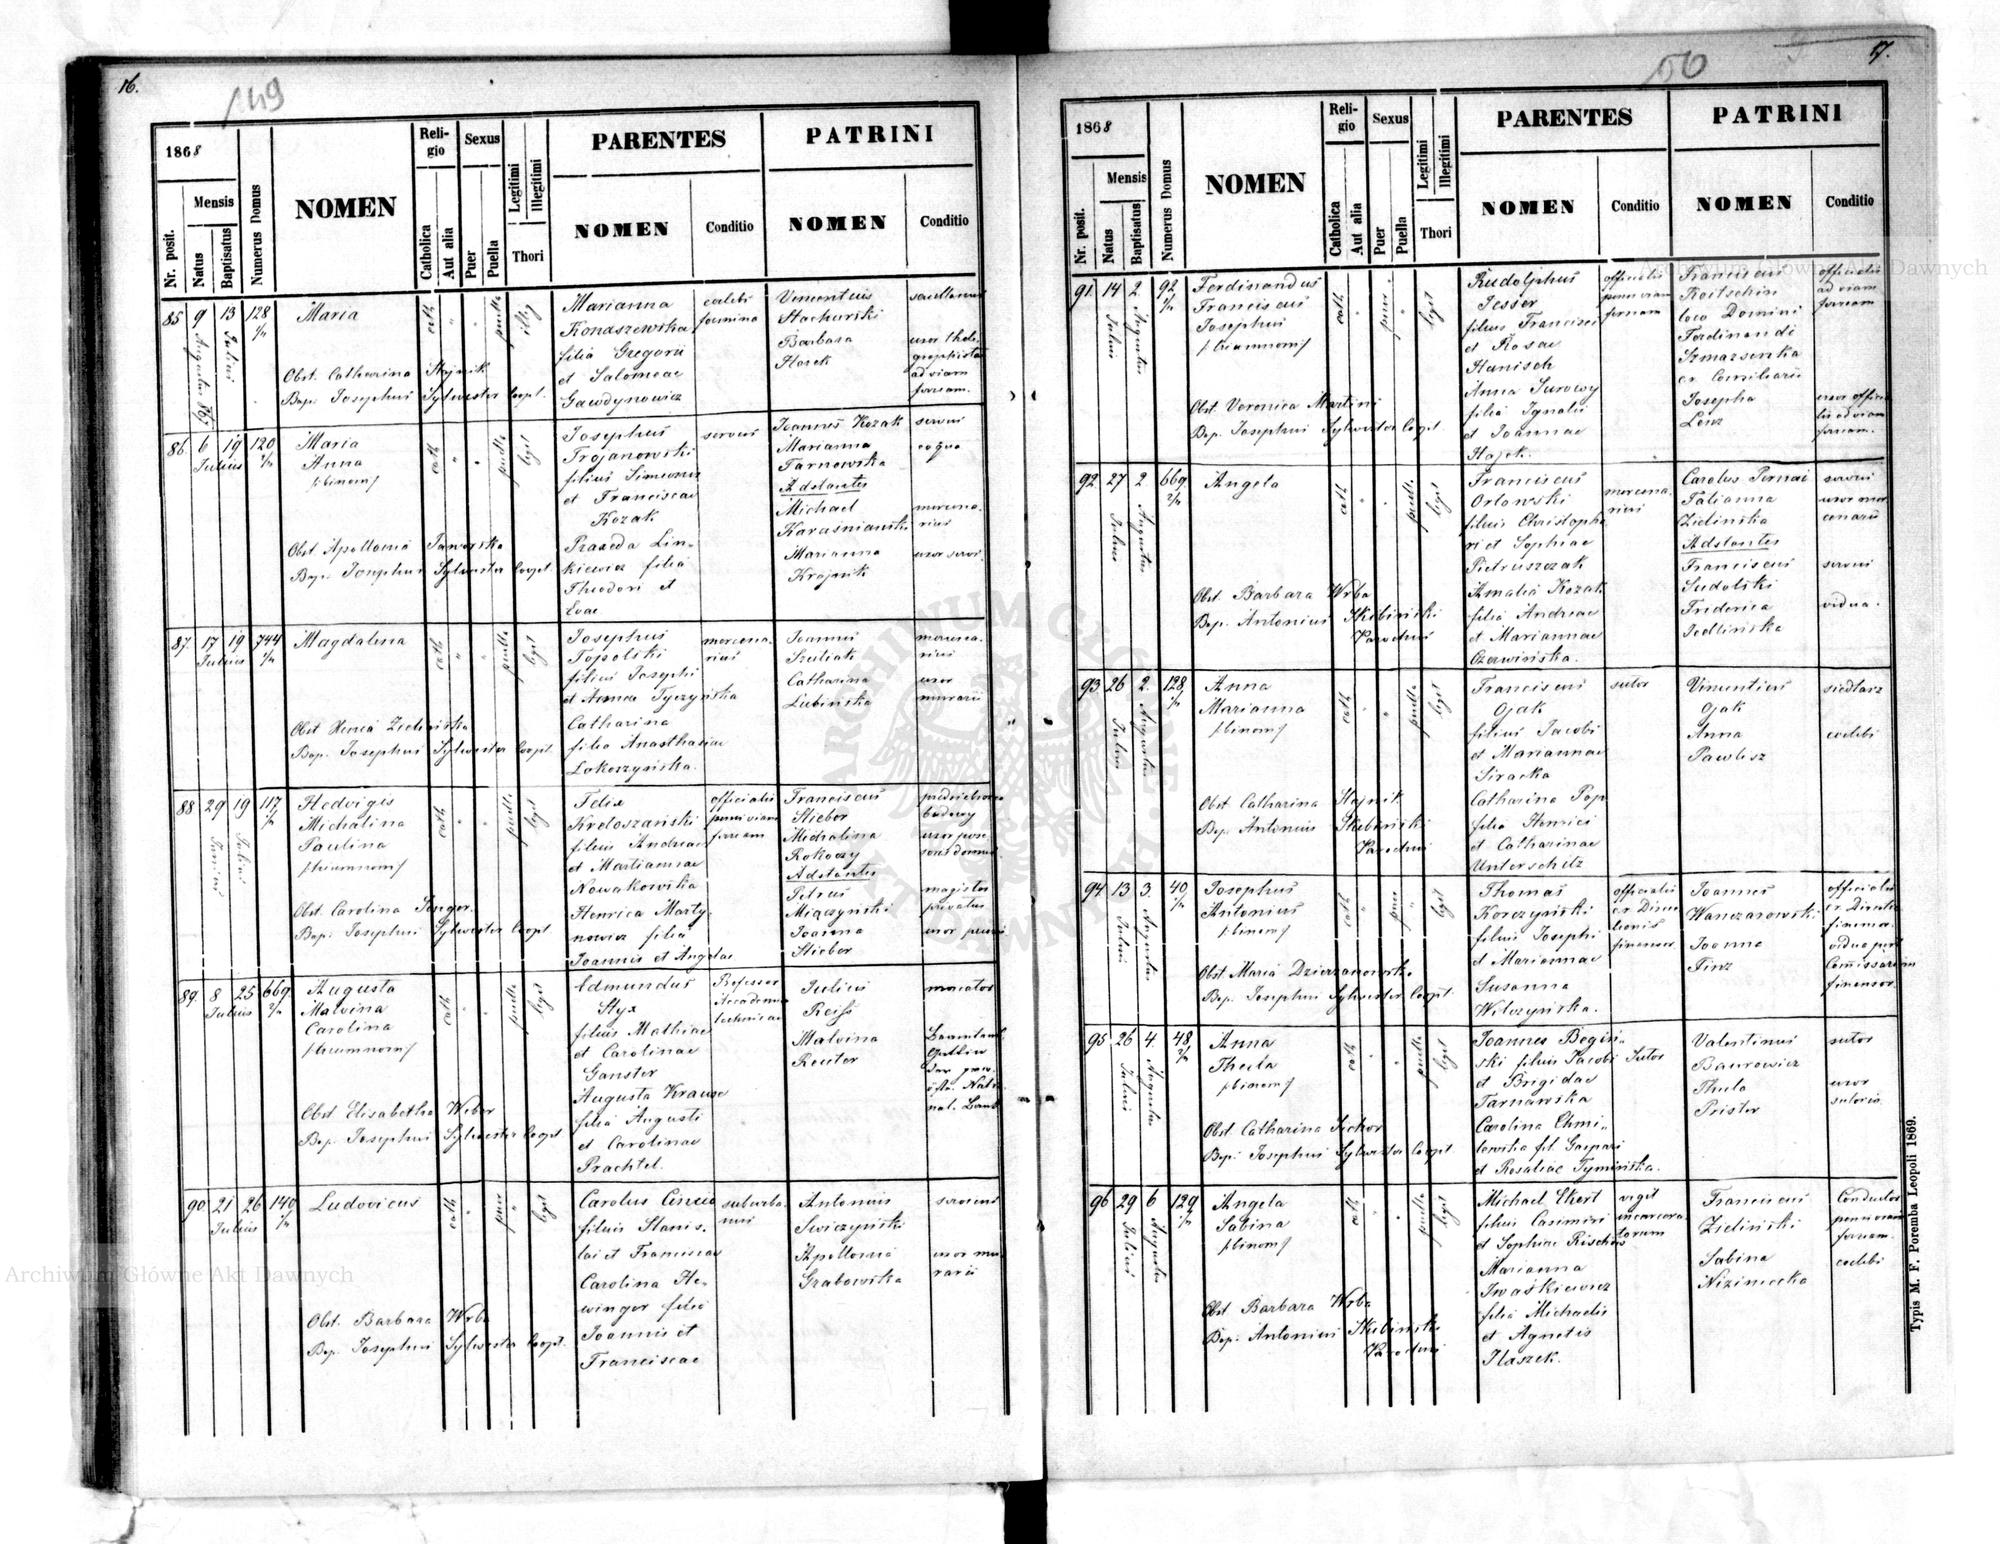 16.
149
1868
Nr. posit.
Mensis
Natus
Baptisatus
Numerus Domus
NOMEN
Religio
Catholica
Aut alia
Sexus
Puer
Puella
Legitimi
Illegitimi
Thori
PARENTES
NOMEN
Conditio
PATRINI
NOMEN
Conditio
85 9 13 128
Augusti
Julius
Maria
Obst. Catharina Stojnik
Bap. Josephus Sylwester Coopt.
cath
puella
illeg
Marianna
Konaszewska
filia Gregorii
et Salomeae
Gawdynowicz
caelebs
foemina
Vincentius
Stachurski
Barbara
Horek
uxor thele-
graphistae
ad viam
ferream.
86. 6 19 120
Julius
Maria
Anna
/:binom:/
Obst Apollonia Jaworska
Bap. Josephus Sylwester Coopt.
cath
puella
legit
Josephus
Trojanowski
filius Simeonis
et Franciscae
Kozak
Praxeda Lin-
kiewicz filia
Theodori et
Evae
servus
Joannes Kozak
Marianna
Tarnowska
Adstantes
Michael
Marianna
Krojnik
servus
coqua
mercena-
rius
uxor servi
87. 17 19 744
Julius
Magdalena
Bap. Josephus Sylwester Coopt.
cath
puella
legit
Josephus
Topolski
filius Josephi
et Annae Tyczyńska
Catharina
filia Anasthasiae
Lokoszyńska.
mercena-
rius
Joannes
Szuliak
Catharina
Lubińska
mercena-
rius
uxor
murarii
88 29 19 117
Junius
Julius
Hedvigis
Michalina
Paulina
/:trinom:/
Obst. Carolina Senger
Bap. Josephus Sylwester Coopt
cath
puella
legit
Felix
Krzoszański
filius Andreae
et Mariannae
Nowakowska
Henrica Marty-
nowicz filia
Joannis et Angelae
officialis
penes viam
ferream
Franciscus
Stieber
Michalina
Rokoczy
Adstantes
Petrus
Miączyński
Joanna
Stieber
budowy
magister
privatus
89. 8 25 669
Julius
Augusta
Malvina
Carolina
/:trinom:/
Obst Elisabetha Weber
Bap. Josephus Sylwester Coopt
cath
puella
legit
Edmundus
Styx
filius Mathiae
et Carolinae
Ganster
Augusta Krause
filia Augusti
et Carolinae
Prachtel.
Professor
Academiae
technicae
Julius
Reiss
Malvina
Reuter
mercator
90. 21 26 140
Julius
Ludovicus
Obst. Barbara Wrba
Bap. Josephus Sylwester Coopt.
cath
puer
legit
filius Stanis-
lai et Franciscae
Carolina He-
winger filia
Joannis et
Franciscae
suburba-
nus
Antonius
Swiczyński
Apollonia
Grabowska
uxor mu-
rarii
17.
150
1868
Nr. posit.
Mensis
Natus
Baptisatus
Numerus Domus
NOMEN
Religio
Catholica
Aut alia
Sexus
Puer
Puella
Legitimi
Illegitimi
Thori
PARENTES
NOMEN
Conditio
PATRINI
NOMEN
Conditio
91. 14 2 92
Julius
Augustus
Ferdinandus
Franciscus
Josephus
/:trinom:/
Obst. Veronica Martini
Bap. Josephus Sylwester Coopt.
cath
puer
legit
Rudolphus
Jesser
filius Francisci
et Rosae
Hanisch
Anna Surowy
filia Ignatii
et Joannae
Hajek.
officialis
penes viam
ferream
Franciscus
Roitschin
loco Domini
Ferdinandi
cr. Consiliarii
Josepha
Lenz
officialis
ad viam
ferream
uxor officia-
lis ad viam
ferream.
92. 27 2. 669
Julius
Augustus
Angela
Obst. Barbara Wrba
Bap. Antonius Skibiński
Parochus
cath
puella
legit
Franciscus
Orlowski
filius Christopho-
ri et Sophiae
Pietruszczak
Amalia Kozak
filia Andreae
et Mariannae
Czerwińska.
mercena-
rius
Carolus Pernai
Tatianna
Zielińska
Adstantes
Franciscus
Sudolski
Friderica
Jedlińska
servus
uxor mer-
cenarii
servus
vidua.
93 26 2. 128
Julius
Augustus
Anna
Marianna
/:binom:/
Obst Catharina Stojnik
Bap. Antonius Skibiński
Parochus
cath
puella
legit
Franciscus
Ojak
filius Jacobi
et Mariannae
Siracka
Catharina Pop
filia Henrici
et Catharinae
Unterschütz
sutor
Vincentius
Ojak
Anna
Pawlisz
siodlarz
caelebs
94. 13 3 40
Julius
Augustus
Josephus
Antonius
/:binom:/
Obst Maria Dzierzanowska
Bap. Josephus Sylwester Coopt.
cath
puer
legit
Thomas
Korczyński
filius Josephi
et Mariannae
Susanna
Wilczyńska.
officialis
cr. Direc-
tionis
financor.
Joannes
Wanczarowski
Joanna
Finz
officialis
cr. Directio.
financor.
vidua post
Commissarium
financor.
95 26 4. 48
Julius
Augustus
Anna
Thecla
/:binom:/
Obst Catharina Sichor
Bap. Josephus Sylwester Coopt.
cath
puella
legit
Joannes Bogiń-
ski filius Jacobi
et Brigidae
Tarnawska
Carolina Chmi-
lewska fil. Gaspari
et Rosaliae Tymińska.
Sutor
Valentinus
Baurowicz
Thecla
Prister
sutor
uxor
sutoris
96 29 6 129
Julius
Augustus
Angela
Sabina
/:binom:/
Obst Barbara Wrba
Bap. Antonius Skibiński
Parochus
cath
puella
legit
Michael Ekert
filius Casimiri
et Sophiae Rischko
Marianna
Iwaśkiewicz
filia Michaelis
et Agnetis
Ilaszek.
vigil
incarcera-
torum
Franciscus
Zieliński
Sabina
Niziniecka
Conductor
penes viam
ferream.
caelebs
Typis M. F. Poremba Leopoli 1869.
Archiwum Główne Akt Dawnych
Archiwum Główne Akt Dawnych
ARCHIWUM GŁÓWNE AKT DAWNYCH